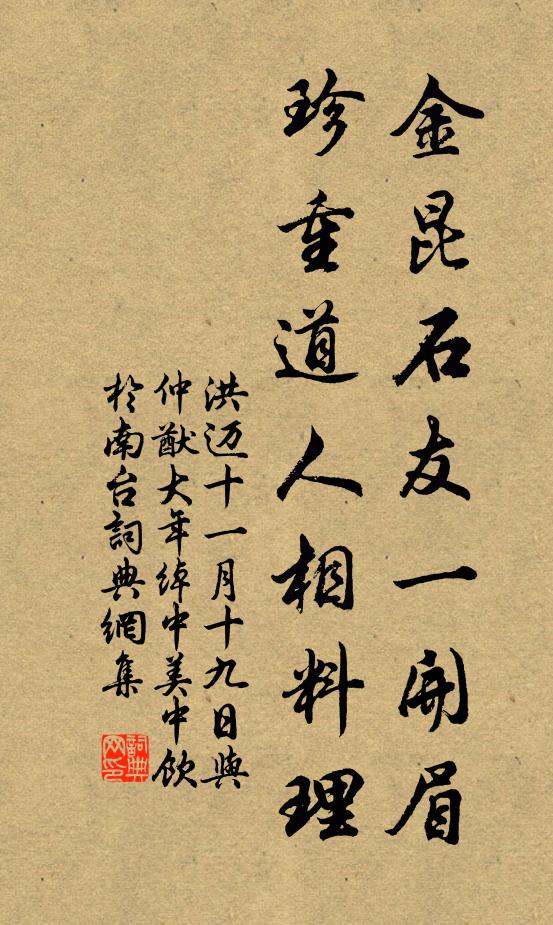 金昆石友一開眉
珍重道人相料理
洪迈十一月十九日與
仲猷大年綽中美中飲
於南台詞典網集
詞典网印